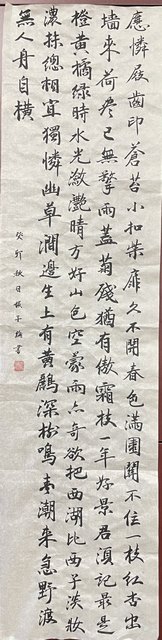 應憐屐齒印蒼苔小扣柴扉久不開春色滿園關不住一枝紅杏出
牆來荷盡已無擎雨蓋菊殘猶有傲霜枝一年好景君須記最是
橙黃橘綠時水光瀲灧晴方好山色空蒙雨亦奇欲把西湖比西子淡妝
濃抹總相宜獨憐幽草澗邊生上有黃鸝深樹鳴春潮來急野渡
無人舟自橫
癸卯秋日書